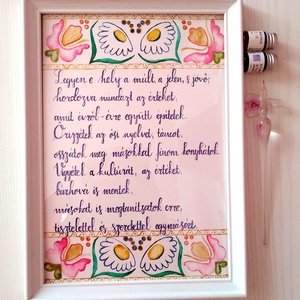 Legyen e hely a múlt, a jelen, s jövő;
hordozva mindazt az értéket,
amit évről-évre együtt építetek.
Őrizzétek az ősi nyelvet, táncot,
osszátok meg másokkal finom konyhátok.
Vigyétek a kultúrát, az értéket,
bárhová is mentek,
másokat is megtanítsatok erre,
tisztelettel és szeretettel egymásért.